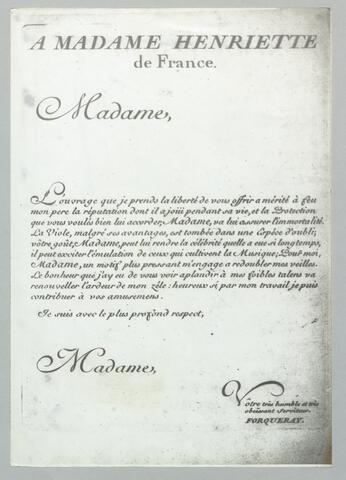 A MADAME HENRIETTE
de France.
Madame,
L'ouvrage que je prends la liberté de vous offrir a mérité à feu
mon pere la réputation dont il a joüi pendant sa vie, et la Protection
que vous voulés bien lui accorder, Madame, va lui assurer l'immortalité.
La Viole, malgré ses avantages, est tombée dans une Espéce d'oubli;
vôtre goût, Madame, peut lui rendre la célébrité quelle a eue si longtemps,
il peut exciter l'émulation de ceux qui cultivent la Musique; Pour moi,
Madame, un motif plus pressant m'engage a redoubler mes veilles.
Le bonheur que j'ay eu de vous voir aplaudir à mes foibles talens va
renouveller l'ardeur de mon zéle: heureux si par mon travail je puis
contribuer à vos amusemens.
Je suis avec le plus profond respect,
Madame,
Vôtre très humble et très
obéissant Serviteur.
FORQUERAY.